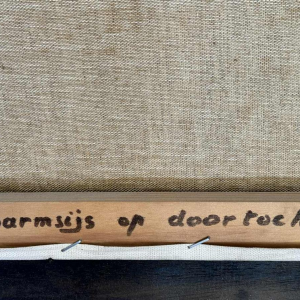 barmsijs op doortoch